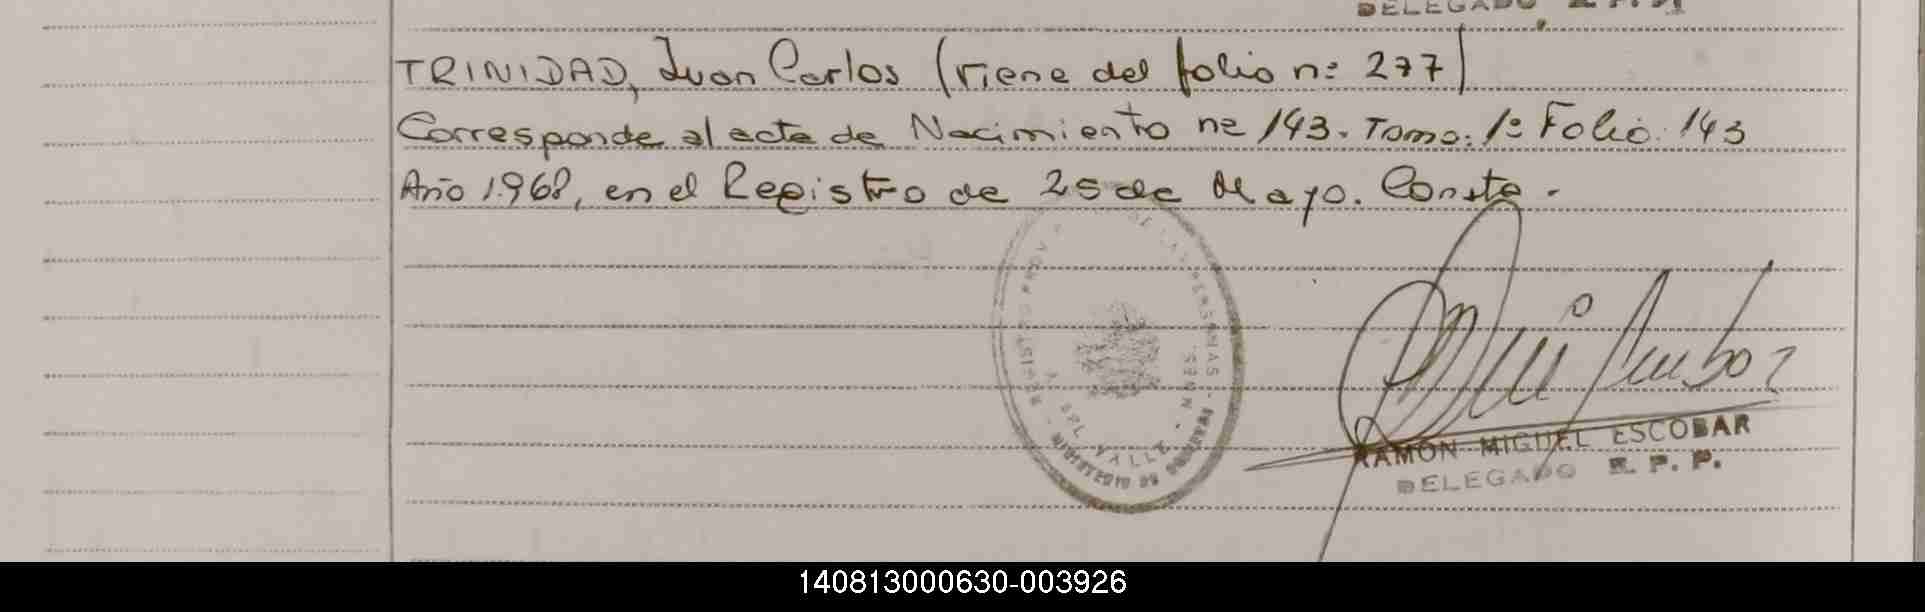 DELEGADO R. P. P.
TRINIDAD, Juan Carlos (viene del folio n: 277)
Corresponde al acta de Nacimiento nº 143. Tomo: 1º Folio: 143
Año 1.968, en el Registro de 25 de Mayo. Conste.
RAMON MIGUEL ESCOBAR
DELEGADO R. P. P.
140813000630-003926